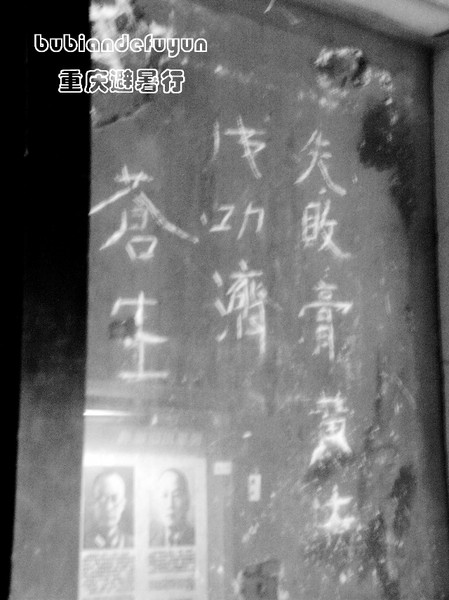 bubiandefuyun
重庆避暑行
失敗膏黄土
成功濟
蒼生